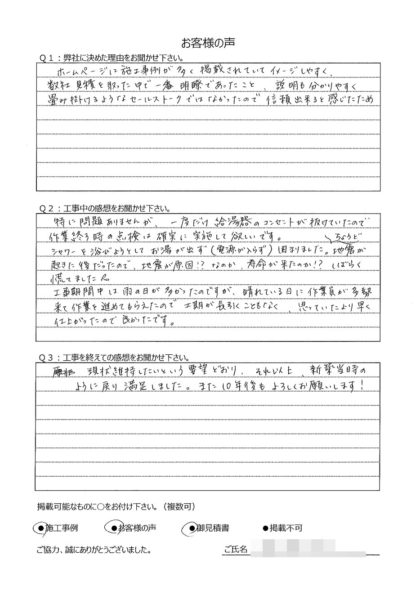 お客様の声
Q１：弊社に決めた理由をお聞かせ下さい。
ホームページに施工事例が多く掲載されていてイメージしやすく、
数社見積を取った中で一番明瞭であったこと、説明も分かりやすく
畳み掛けるようなセールストークではなかったので信頼出来ると感じたため
Q２：工事中の感想をお聞かせ下さい。
特に問題ありませんが、一度だけ給湯器のコンセントが抜けていたので
作業終了時の点検は確実に実施して欲しいです。
ちょうど
シャワーを浴びようとしてお湯が出ず（電源が入らず）困りました。地震が
起きた後だったので、地震が原因!?なのか、寿命が来たのか!?しばらく
慌てました
工事期間中は雨の日が多かったのですが、晴れている日に作業員が多勢
来て作業を進めてもらえたので工期が長引くこともなく、思っていたより早く
仕上がったので良かったです。
Q３：工事を終えての感想をお聞かせ下さい。
現状維持したいという要望どおり、それ以上、新築当時の
ように戻り満足しました。また10年後もよろしくお願いします！
掲載可能なものに○をお付け下さい。（複数可）
●施工事例 ●お客様の声 ●御見積書 ●掲載不可
ご協力、誠にありがとうございました。
ご氏名